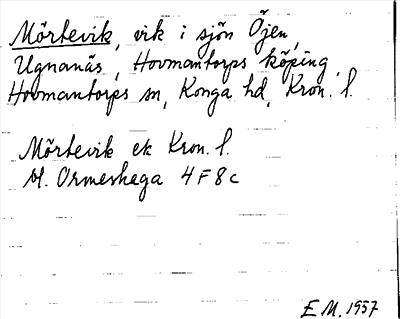 Mörtevik, vik i sjön Öjen,
Ugnanäs, Hovmantorps köping,
Hovmantorps sn, Konga hd, Kron. l.
Mörtevik ek Kron. l.
bl. Ormeshaga 4F8c
E.M. 1957